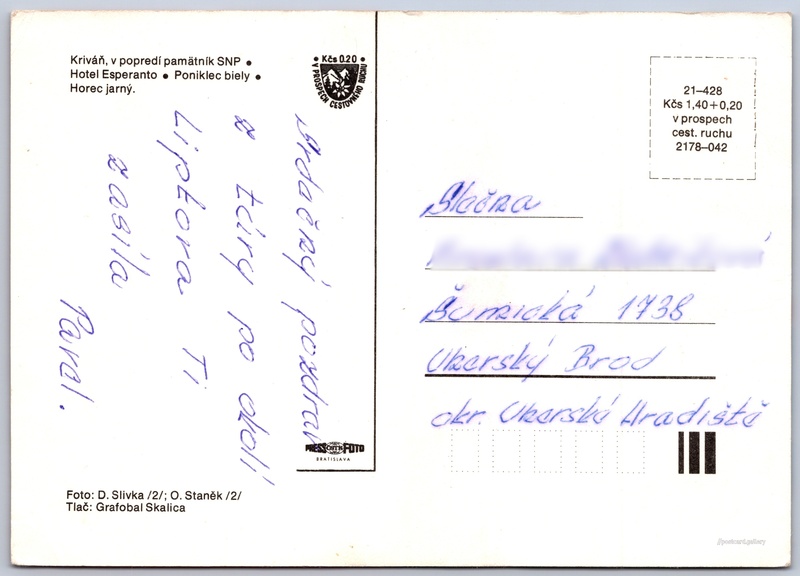 Kriváň, v popredí pamätník SNP •
Hotel Esperanto • Poniklec biely •
Horec jarný.
Kčs 0.20
V PROSPECH CESTOVNÉHO RUCHU
21–428
Kčs 1,40+0,20
v prospech
cest. ruchu
2178–042
Srdačný pozdrav
z túry po okolí
Liptova Ti
zasíla
Pavel.
Slečna
Šumická 1738
Uherský Brod
okr. Uherské Hradiště
PRESSFOTO
BRATISLAVA
Foto: D. Slivka /2/; O. Staněk /2/
Tlač: Grafobal Skalica